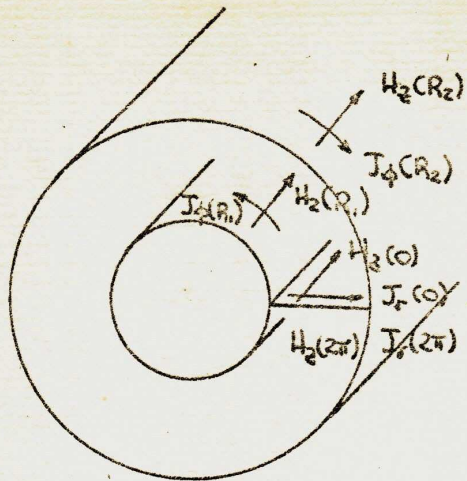 H_z(R_2)
J_ϕ(R_2)
J_ϕ(R_1)
H_z(R_1)
H_z(0)
J_r(0)
H_z(2π)
J_r(2π)